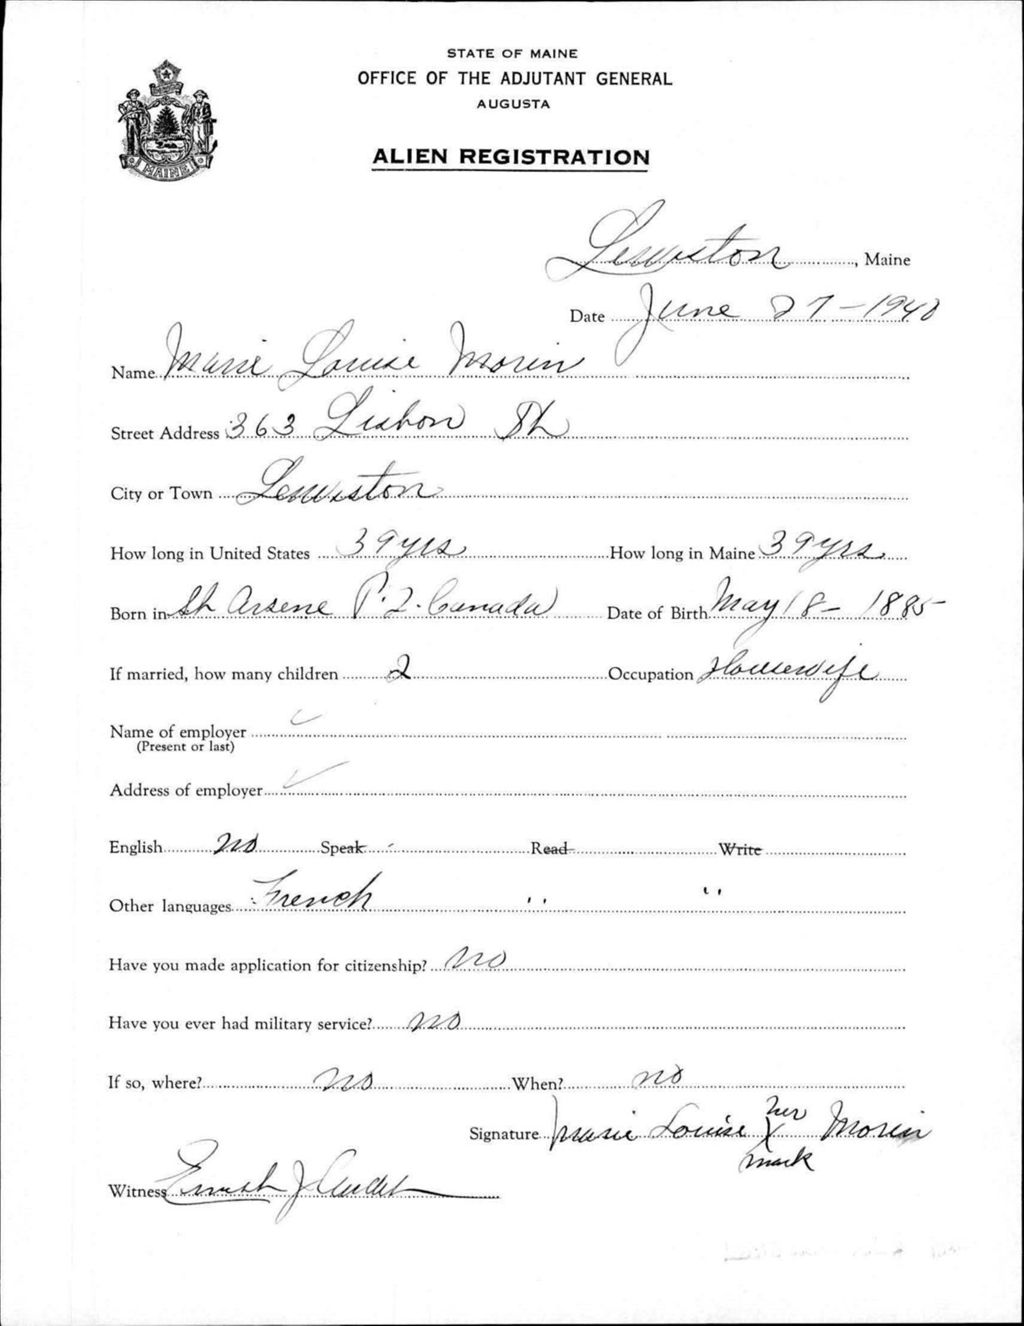 STATE OF MAINE
OFFICE OF THE ADJUTANT GENERAL
AUGUSTA
ALIEN REGISTRATION
MAINE
Lewiston, Maine
Date June 27-1940
Name Marie Louise Morin
Street Address 363 Lisbon St
City or Town Lewiston
How long in United States 39 yrs How long in Maine 39 yrs
Born in St Arsene P.Q. Canada Date of Birth May 18-1885
If married, how many children 2 Occupation Housewife
Name of employer
(Present or last)
Address of employer
English no Speak Read Write
Other languages French " "
Have you made application for citizenship? no
Have you ever had military service? no
If so, where? no When? no
Signature Marie Louise her X mark Morin
Witness J Audet